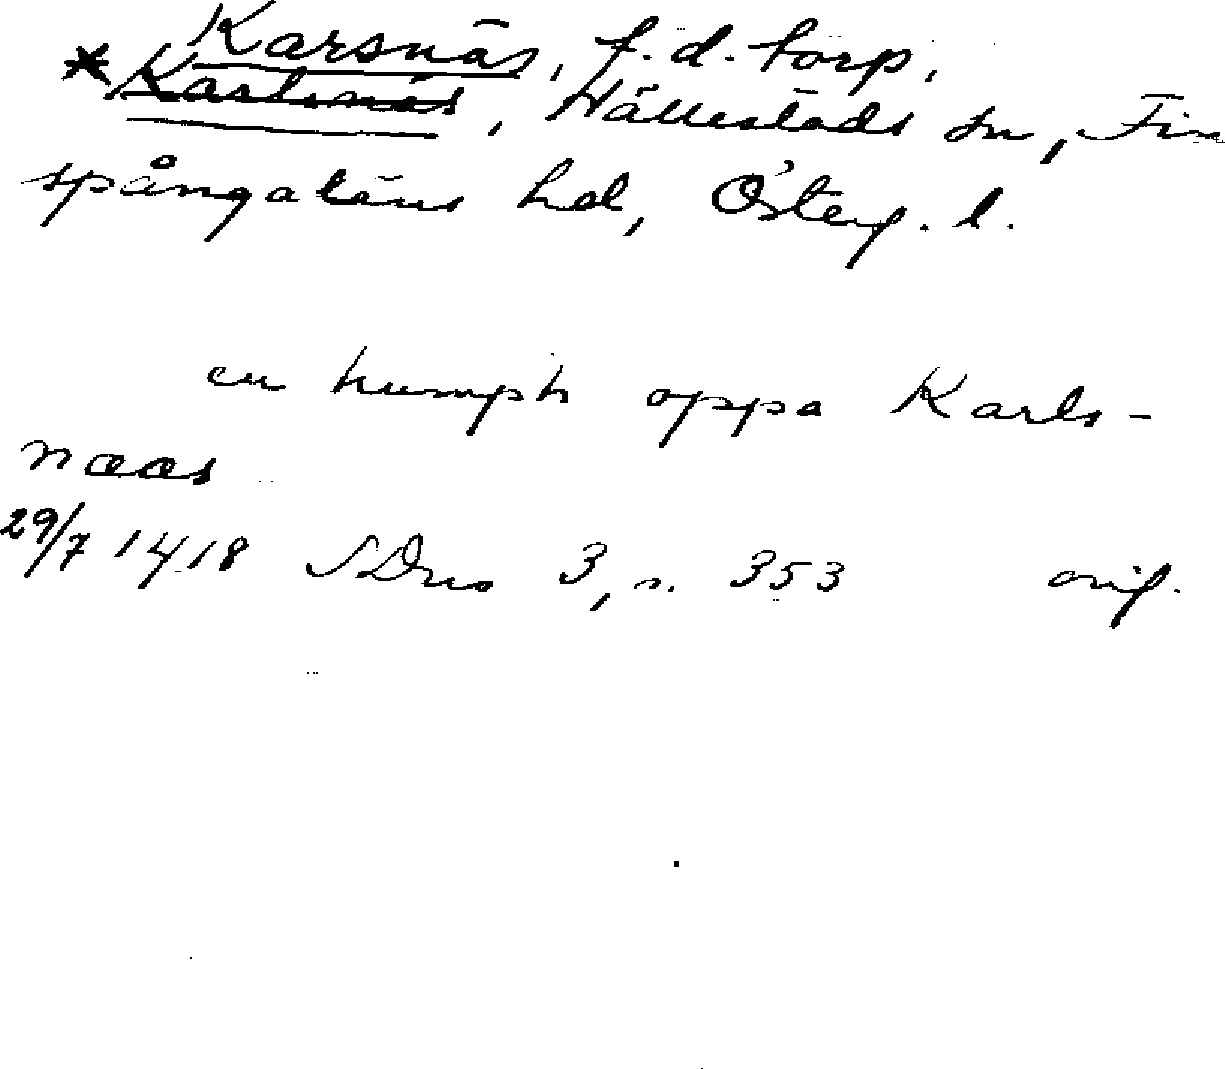 Karsnäs, f.d. torp,
* Karlsnäs, Hällestads sn, Fin
spångaläns hd, Österg. l.
en humph oppa Karls-
naas
29/7 1418 SDns 3, s. 353 orig.